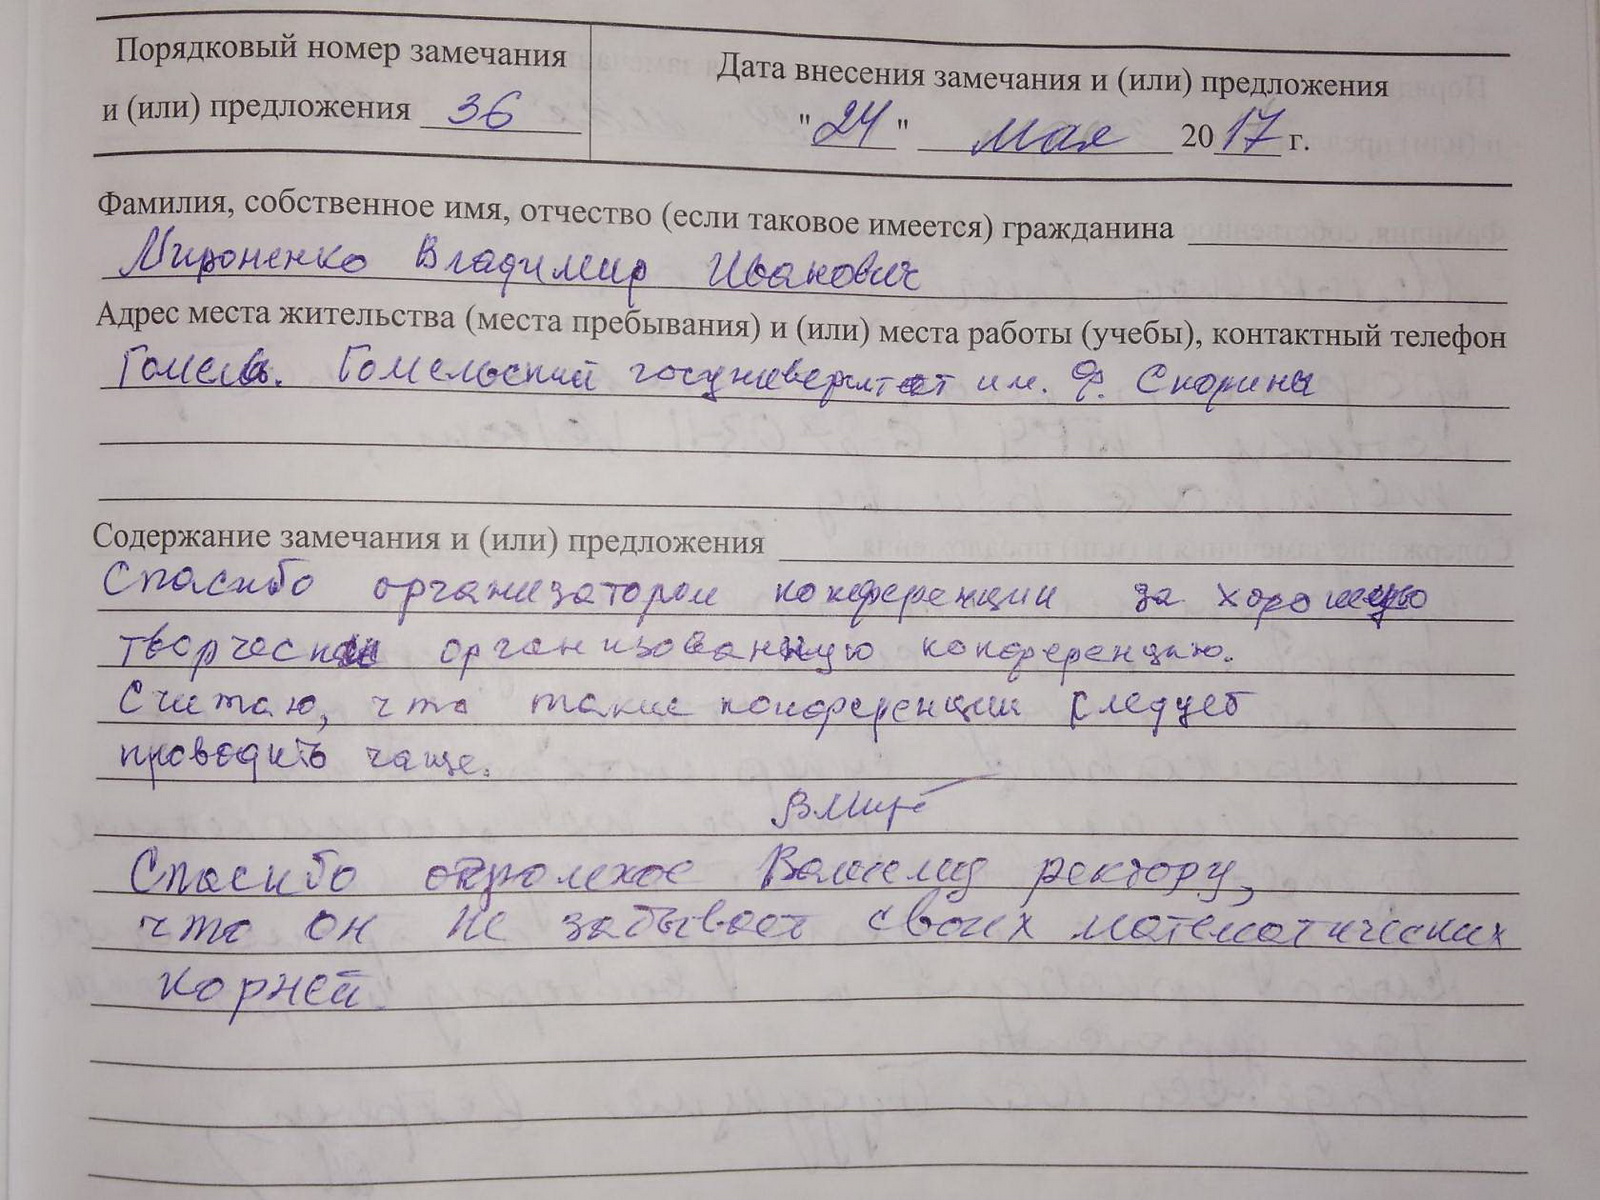 Порядковый номер замечания
и (или) предложения 36
Дата внесения замечания и (или) предложения
"24" мая 2017 г.
Фамилия, собственное имя, отчество (если таковое имеется) гражданина
Мироненко Владимир Иванович
Адрес места жительства (места пребывания) и (или) места работы (учебы), контактный телефон
Гомель. Гомельский госуниверситет им. Ф. Скорины
Содержание замечания и (или) предложения
Спасибо организаторам конференции за хорошую
творчески организованную конференцию.
Считаю, что такие конференции следует
проводить чаще.
Спасибо огромное Вашему ректору,
что он не забывает своих математических
корней.